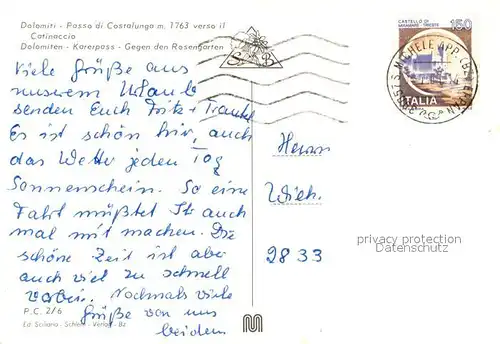 Dolomiti - Passo di Costalunga m. 1763 verso il
Catinaccio
Dolomiten - Karerpass - Gegen den Rosengarten
Viele Grüße aus
unserem Urlaub
senden Euch Fritz + Trautel
Es ist schön hir, auch
das Wetter jeden Tag
Sonnenschein. So eine
Fahrt müßtet Ihr auch
mal mit machen. Die
schöne Zeit ist aber
auch viel zu schnell
vorbei. Nochmals viele
Grüße von uns
beiden
P.C. 2/6
Ed. Sciliano - Schlern - Verlag - Bz
S B
CASTELLO DI
MIRAMARE - TRIESTE
150
ITALIA
S. MICHELE APP.
Herrn
2833
privacy protection
Datenschutz